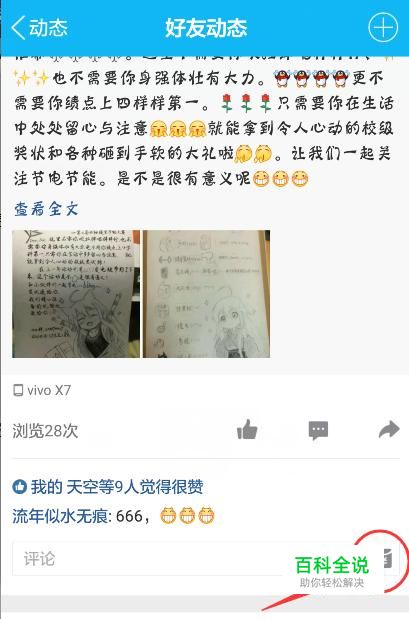 动态
好友动态
也不需要你身强体壮有大力。更不
需要你绩点上四样样第一。只需要你在生活
中处处留心与注意就能拿到令人心动的校级
奖状和各种砸到手软的大礼啦。让我们一起关
注节电节能。是不是很有意义呢
查看全文
vivo X7
浏览28次
我的 天空等9人觉得很赞
流年似水无痕: 666，
评论
百科全说
助你轻松解决